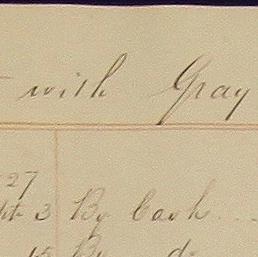 with Gray
27
3 By Cash
15 By do